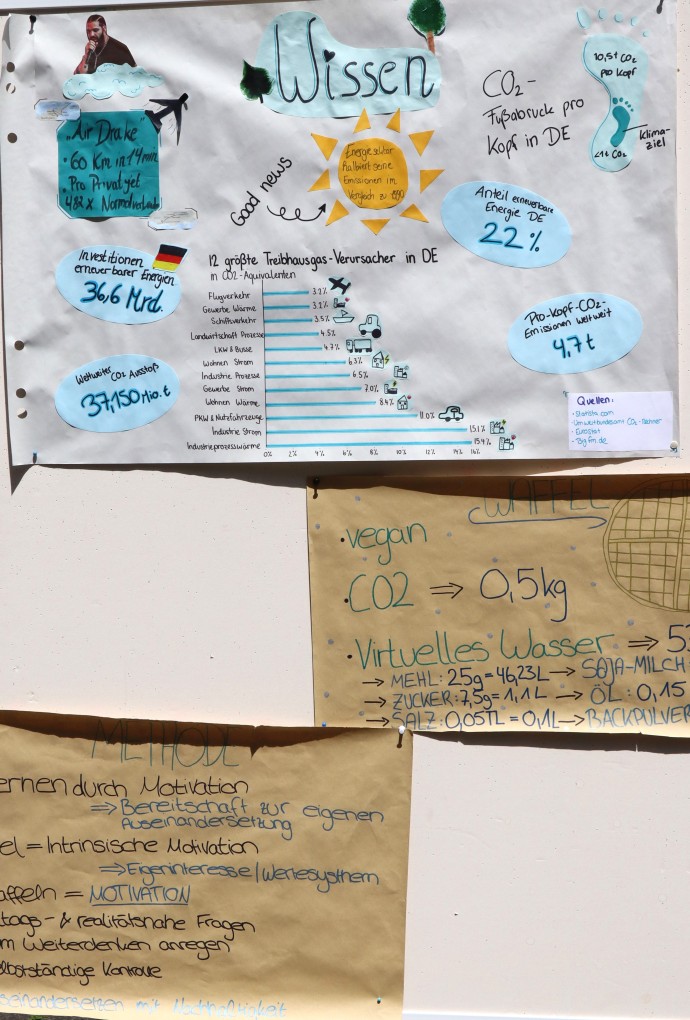 Wissen
"Air Drake
• 60 Km in 14 min
• Pro Privatjet
482 x Normalverbr
Good news
Energiesektor
halbiert seine
Emissionen im
Vergleich zu 1990
CO₂-
Fußabruck pro
Kopf in DE
10,5t CO₂
pro Kopf
Klima-
ziel
<1t CO₂
Anteil erneuerbare
Energie DE
22%
Investitionen
erneuerbarer Energien
36,6 Mrd.
Weltweiter CO₂ Ausstoß
37,150 Mio. t
12 größte Treibhausgas-Verursacher in DE
in CO₂-Äquivalenten
Flugverkehr 3.2%
Gewerbe Wärme 3.2%
Schiffverkehr 3.5%
Landwirtschaft Prozesse 4.5%
LKW & Busse 4.7%
Wohnen Strom 6.3%
Industrie Prozesse 6.5%
Gewerbe Strom 7.0%
Wohnen Wärme 8.4%
PKW & Nutzfahrzeuge 11.0%
Industrie Strom 15.1%
Industrieprozesswärme 15.4%
0% 2% 4% 6% 8% 10% 12% 14% 16%
Pro-Kopf-CO₂-
Emissionen weltweit
4,7 t
Quellen:
• Statista.com
• Umweltbundesamt CO₂-Rechner
• Eurostat
• Bigfm.de
WAFFEL
• vegan
• CO2 ⇒ 0,5kg
• Virtuelles Wasser ⇒ 5
→ MEHL: 25g = 46,23L → SOJA-MILCH
→ ZUCKER: 7,5g = 1,1L → ÖL: 0,15
→ SALZ: 0,05TL = 0,1L → BACKPULVER
METHODE
ernen durch Motivation
⇒ Bereitschaft zur eigenen
Auseinandersetzung
el = Intrinsische Motivation
⇒ Eigeninteresse/Wertesysthem
affeln = MOTIVATION
ltags- & realitätsnahe Fragen
m Weiterdenken anregen
elbstständige Kontrolle
seinandersetzen mit Nachhaltigkeit